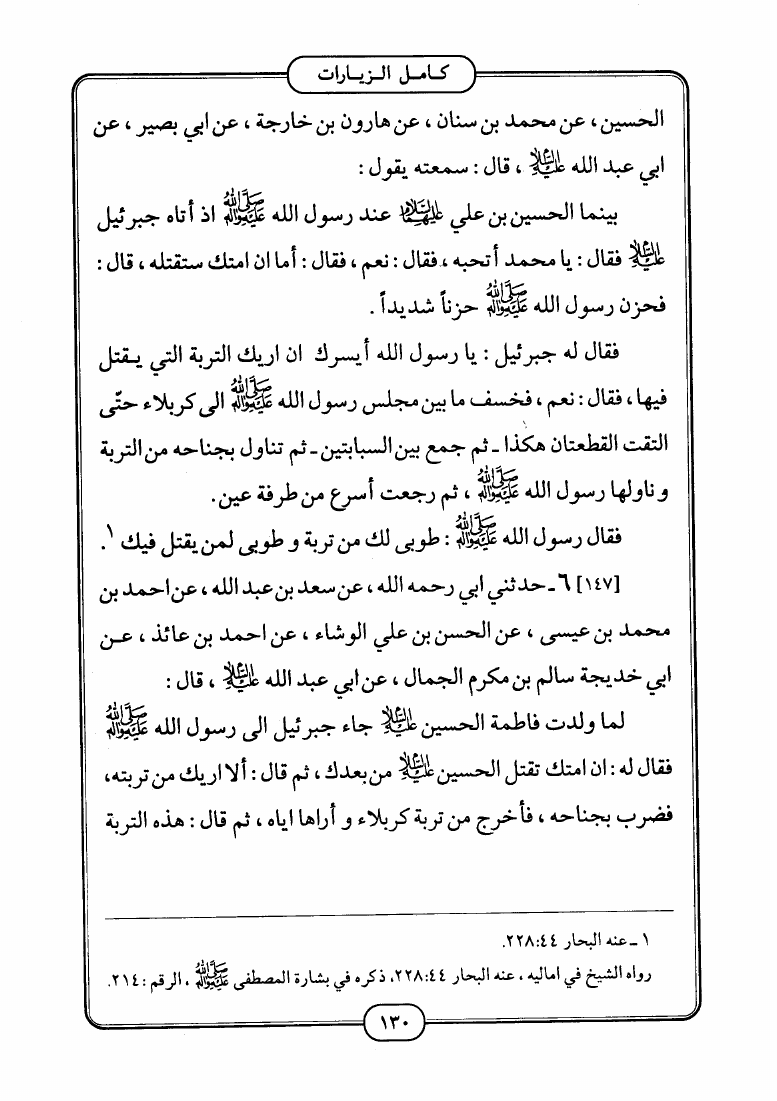 كامل الزيارات
الحسين ، عن محمد بن سنان ، عن هارون بن خارجة ، عن ابي بصير ، عن
ابي عبد الله عليه السلام ، قال : سمعته يقول :
بينما الحسين بن علي عليهما السلام عند رسول الله صلى الله عليه وآله اذ أتاه جبرئيل
عليه السلام فقال : يا محمد أتحبه ، فقال : نعم ، فقال : أما ان امتك ستقتله ، قال :
فحزن رسول الله صلى الله عليه وآله حزناً شديداً .
فقال له جبرئيل : يا رسول الله أيسرك ان اريك التربة التي يقتل
فيها ، فقال : نعم ، فخسف ما بين مجلس رسول الله صلى الله عليه وآله الى كربلاء حتّى
التقت القطعتان هكذا ـ ثم جمع بين السبابتين ـ ثم تناول بجناحه من التربة
و ناولها رسول الله صلى الله عليه وآله ، ثم رجعت أسرع من طرفة عين .
فقال رسول الله صلى الله عليه وآله : طوبى لك من تربة و طوبى لمن يقتل فيك ١ .
[١٤٧] ٦ ـ حدثني ابي رحمه الله ، عن سعد بن عبد الله ، عن احمد بن
محمد بن عيسى ، عن الحسن بن علي الوشاء ، عن احمد بن عائذ ، عن
ابي خديجة سالم بن مكرم الجمال ، عن ابي عبد الله عليه السلام ، قال :
لما ولدت فاطمة الحسين عليه السلام جاء جبرئيل الى رسول الله صلى الله عليه وآله
فقال له : ان امتك تقتل الحسين عليه السلام من بعدك ، ثم قال : ألا اريك من تربته ،
فضرب بجناحه ، فأخرج من تربة كربلاء و أراها اياه ، ثم قال : هذه التربة
١ ـ عنه البحار ٤٤:٢٢٨.
رواه الشيخ في اماليه ، عنه البحار ٤٤:٢٢٨، ذكره في بشارة المصطفى صلى الله عليه وآله ، الرقم : ٢١٤.
١٣٠